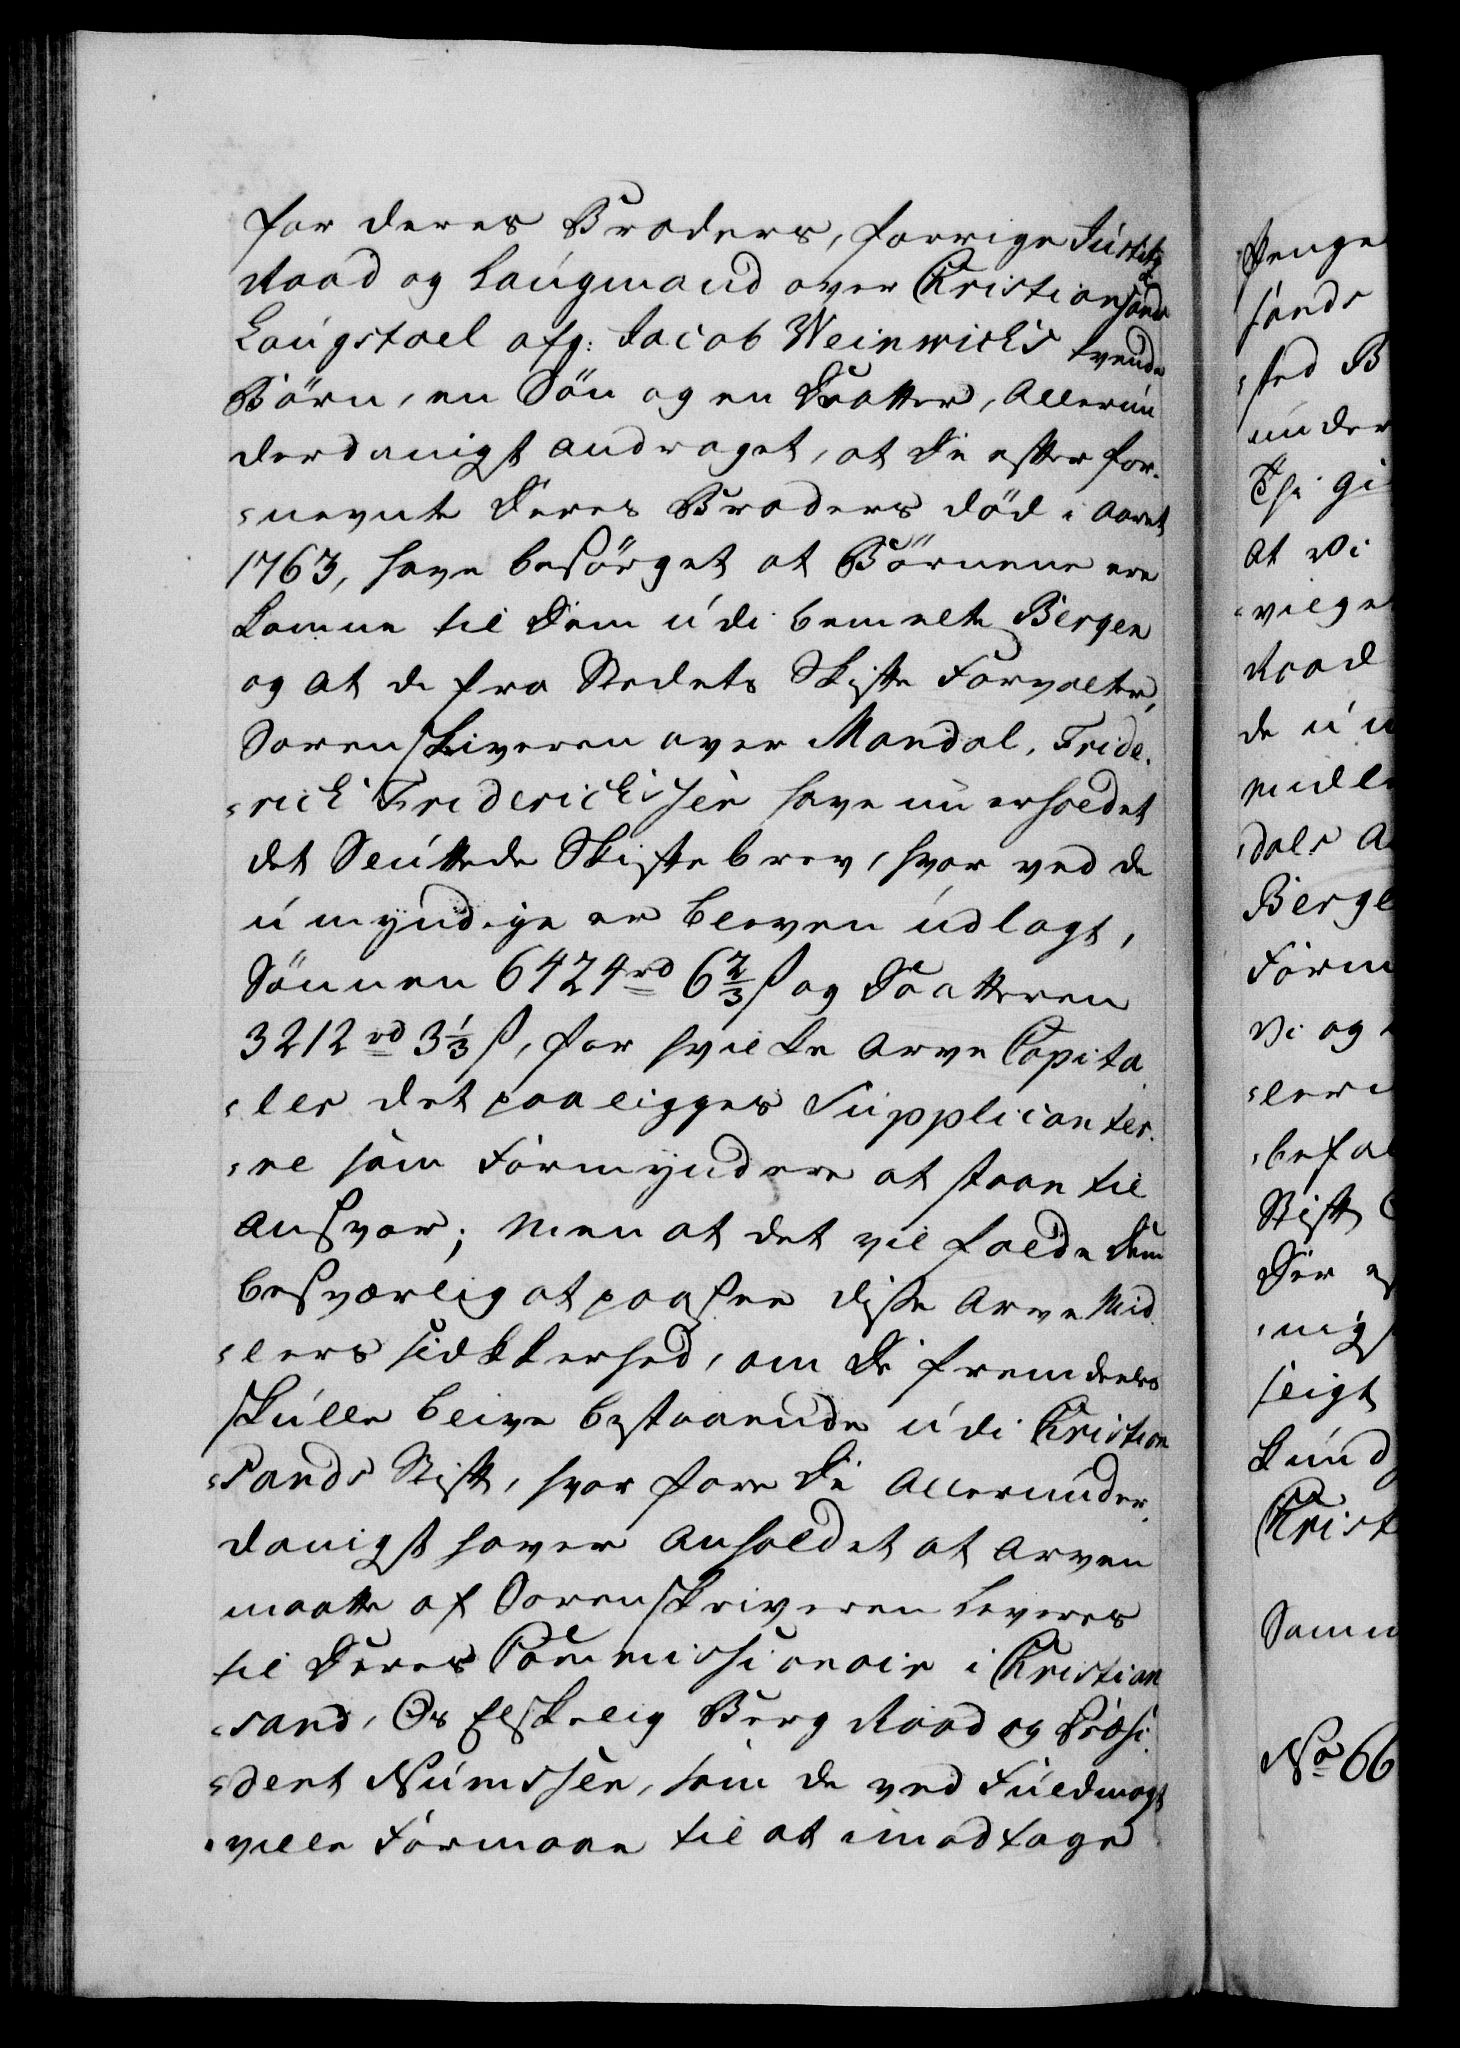 for deres Broders, forrige Justitz
Raad og Laugmand over Christiansands
Laugstoel afg: Jacob Weinwichs tvende
Börn, en Sön og en Daatter, Allerun
derdanigst andraget, at De efter for-
nevnte Deres Broders död i Aaret
1763, have besörget at Börnene ere
komne til Dem udi bemelte Bergen
og at de fra Stedets Skifte Forvalter,
Sorenskriveren over Mandal, Fride-
rich Friderichsen have nu erholdet
det Sluttede Skiftebrev, hvor ved de
umyndige er bleven udlagt,
Sönnen 6424 rd 6 2/3 ß og Daatteren
3212 rd 3 1/3 ß, for hvilke Arve Capita
ler det paaligges Supplicanter-
ne som Formyndere at staae til
Ansvar; Men at det vil falde Dem
besværlig at paasee disse Arve Mid
lers sikkerhed, om De fremdeeles
skulle blive bestaaende udi Christian
sands Stift, hvor fore De Allerunder-
danigst haver Anholdet at Arven
maatte af Sorenskriveren leveres
til Deres Commissionair i Christian
sand, Os Elskelig Berg Raad og Præsi-
dent Numssen, som de ved Fuldmagt
ville Formaae til at imodtage
Penge
sands
sted B
under
Thi gi
At Vi
vilge
Raad
de u
midle
dals A
Berge
Form
Vi og
lern
befal
Stift
Der
nigs
seigt
kund
Christ
No 66